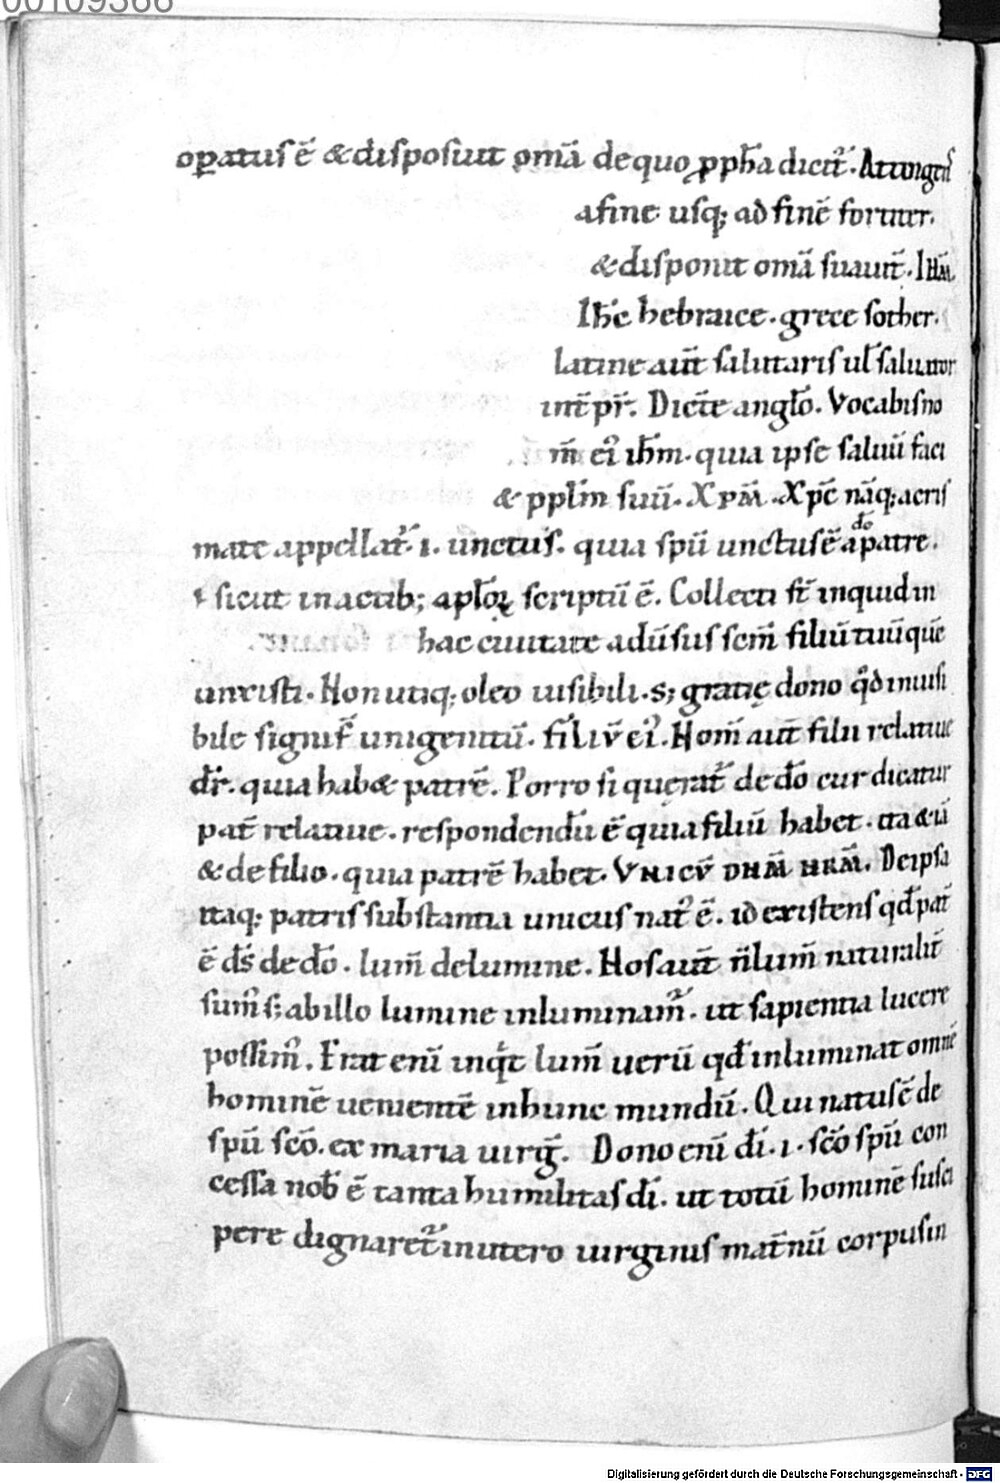 00109366
oꝑatusē &disposuit om̄a dequo ꝓph̄a dicit᷑. Attingens
afine usq; ad finē fortit̄.
&disponit om̄a suauit̄. IHM̄.
Ih̄c hebraice. grece sother.
latine aut̄ salutaris ul̄ saluator
int̄pr̄. Dicēte angl̄o. Vocabis no
m̄ ei᷒ ih̄m. quia ipse saluū faci
& ppl̄m suū. XPM̄. Xpc̄ nāq; acris
mate appellat᷑. i. unctus. quia spū unctusē a dō patre.
sicut inactib; apl̄oꝝ scriptū ē. Collecti st̄ inquid in
hac ciuitate adūsus sc̄m filiū tuū quē
unxisti. Non utiq; oleo uisibili. S; gratię dono qd̄ inuisi
bile signif̄ unigenitū. filiv̄ ei᷒. Nom̄ aut̄ filii relatiue
dr̄. quia hab& patrē. Porro si querat᷑ de dō cur dicatur
pat̄ relatiue. respondendū ē quia filiū habet. ita & ū
& de filio. quia patrē habet. Vnicv̄ dnm̄ nrm̄. Deipsa
itaq; patris substantia unicus nat᷒ ē. id existens qd̄ pat̄
ē ds̄ dedō. lum̄ delumine. Nos aut̄ n̄ lum̄ naturalit̄
sum᷒ s; abillo lumine inluminam᷑. ut sapientia lucere
possim᷒. Erat enī inqͥt lum̄ uerū qd̄ inluminat omnē
hominē uenientē inhunc mundū. Qui natusē de
spū scō. ex maria uirḡ. Dono enī dī. i. scō spū con
cessa nob̄ ē tanta humilitas dī. ut totū hominē susci
pere dignaret᷑ inutero uirginis mat̄nū corpus in
Digitalisierung gefördert durch die Deutsche Forschungsgemeinschaft - DFG